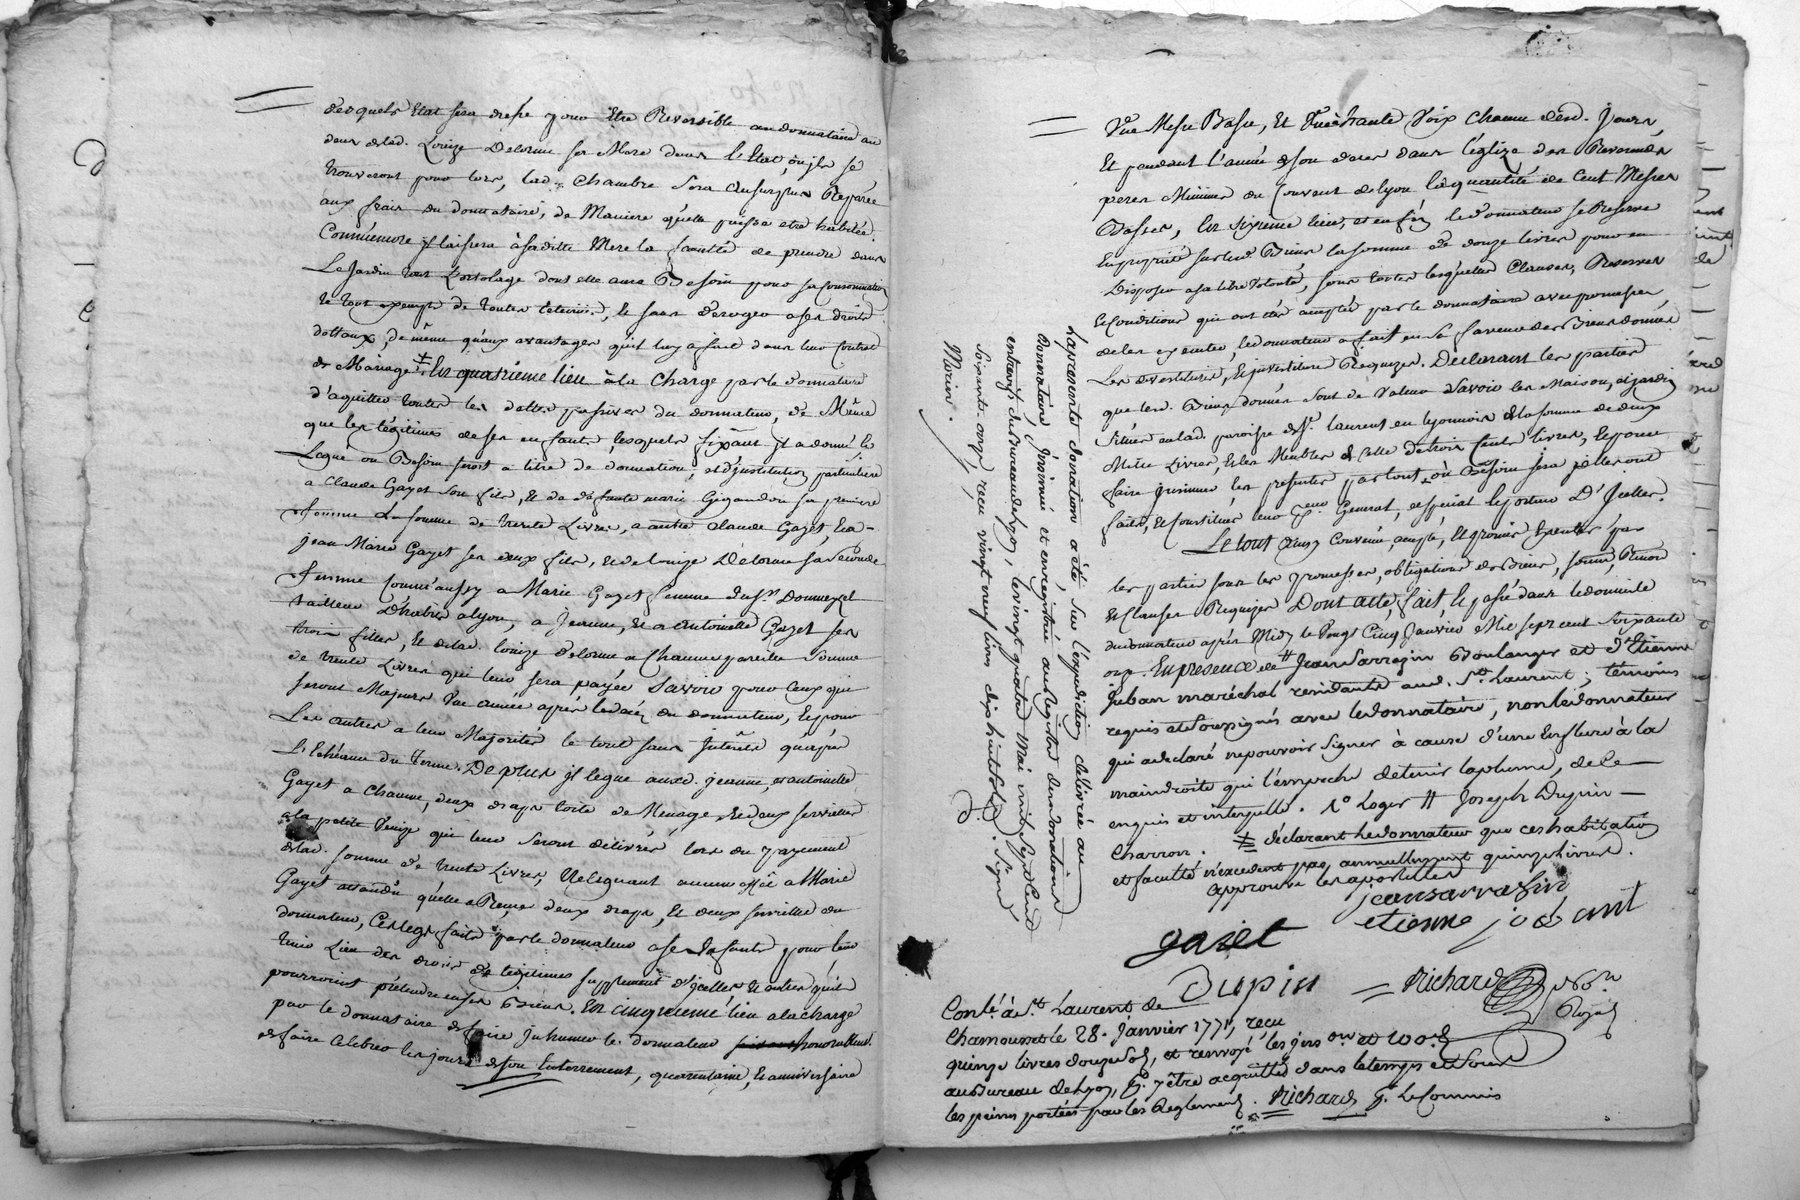 desquels Etat sera dressé pour Etre Reversible au donnataire au
deces de lad. Louize Delorme sa Mere dans l'Etat, où ils se
trouveront pour lors, lad. Chambre sera au surplus Reparée
aux frais du donnataire, de Maniere qu'elle puisse etre habitée
Commemore il laissera à sa ditte Mere la faculté de prendre dans
Le Jardin tout L'ortolage dont elle aura Besoin pour sa Consommation
le tout exempt de toutes, Et sans deroger a ses droits
dottaux, de même qu'aux avantages qu'il luy a fait dans leur Contrat
de Mariage. En quatrieme lieu à la Charge par le donnataire
d'aquitter toutes les dettes passives du donnateur, de Même
que les légitimes de ses enfants, lesquels fixant il a donné Et
Legue ou Besoin seroit a titre de donnation, et d'institution particuliere
a Claude Gayet son fils, & de défunte marie Gigandon sa premiere
femme La somme de trente Livres, a autre Claude Gayet, Et a
jean Marie Gayet ses deux fils, & de Louize Delorme sa seconde
femme comm'aussy a Marie Gayet femme du Sr. Dommeyel
tailleur D'habits a lyon, a Jeanne, & a Antoinette Gayet ses
trois filles, & de lad. Louize Delorme a Chacune pareille Somme
de trente Livres qui leur sera payée Savoir pour ceux qui
seront Majeurs Une année après le décés du donnateur, Et pour
Les autres a leur Majorités le tout sans Interêts qu'après
L'Echéance du Terme. De plus jl legue auxd. jeanne, et antoinette
Gayet a Chacune, deux draps toile de Menage, & deux serviettes
a la petite Venize qui leur seront délivrés lors du payement
de lad. somme de trente Livres, Ne leguant aucun effet a Marie
Gayet attendu qu'elle a Reçu deux draps, Et deux serviettes du
donnateur, Ces legs faits par le donnateur a ses Enfants pour leur
tenir Lieu des droits de légitimes supplement d'jcelles & autres qu'ils
pourroient prétendre en ses Biens. En cinquieme lieu a la charge
par le donnataire de faire Inhumer le donnateur honorablement
de faire Celebrer les jours de son Enterrement, quarantaine, & anniversaire
Une Messe Basse, Et Une à haute Voix chacun desd. jours,
Et pendant l'année de son deces dans l'église des Reverends
peres Minimes du Couvent de lyon la quantité de Cent Messes
Basses, En sixieme lieu, et enfin le donnateur se Reserve
En proprieté sur lesd. Biens la somme de douze livres pour en
Disposer a sa libre Volonté, sous toutes lesquelles Clauses, Reserves
Et Conditions qui ont étés acceptés par le donnataire avec promesses
de les executer, le donnateur a fait en sa faveur des Biens donnés
Les devestitures, & jnvestitures Requizes. Declarant les parties
que lesd. Biens donnés sont de Valeur Savoir les Maison, et jardin
Situés en lad. paroisse de St. laurent en lyonnois de la somme de deux
Mille Livres, Et les Meubles de celle de trois Cents livres, Et pour
faire jnsinuer les presentes partout où Besoin sera jlelles ont
faits, Et Constitués leur Pr.eur General, et special le porteur D'Jcelles.
Le tout ainsy Convenu, accepté, Et promis Executer par
les parties sous les promesses, obligations de Biens,
Et Clauses Requizes Dont acte, fait, Et passé dans le domicile
du donnateur après Midy le Vingt Cinq Janvier Mil sept cent soixante
onze. En presence de Jean Sarrazin Boulanger et d'Etienne
juban maréchal residants aud. St. Laurent, témoins
requis et soussignés avec le donnataire, non le donnateur
qui a declaré ne pouvoir signer à cause d'une Enflure à la
main droite qui l'empeche de tenir la plume, de ce
enquis et interpellé. Joseph Dupin
Charron. declarant le donnateur que ces habitation
et faculté n'excedent pas annuellement quinze livres.
approuvé les apostilles
jean sarrazin
gaiet etienne
Dupin Richard Nore. Royal
Conlé. à St. Laurent de
Chamousset le 28. Janvier 1771, reçu
quinze livres douze sols, et renvoyé les jns.on et 100.e d.
au Bureau de Lyon, Pr. y être acquittés dans le temps et sous
les peines portées par les Reglements. Richard Pr. Le Commis
La presente donation a été, sur l'expedition délivrée au
donnataire jnsinuée et enregistrée au Registre des donations
entrevifs du Bureau de Lyon, le vingt quatre Mai mil sept Cent
soixante-onze, reçu vingt neuf livres dix huit sols. Signé
Morin.